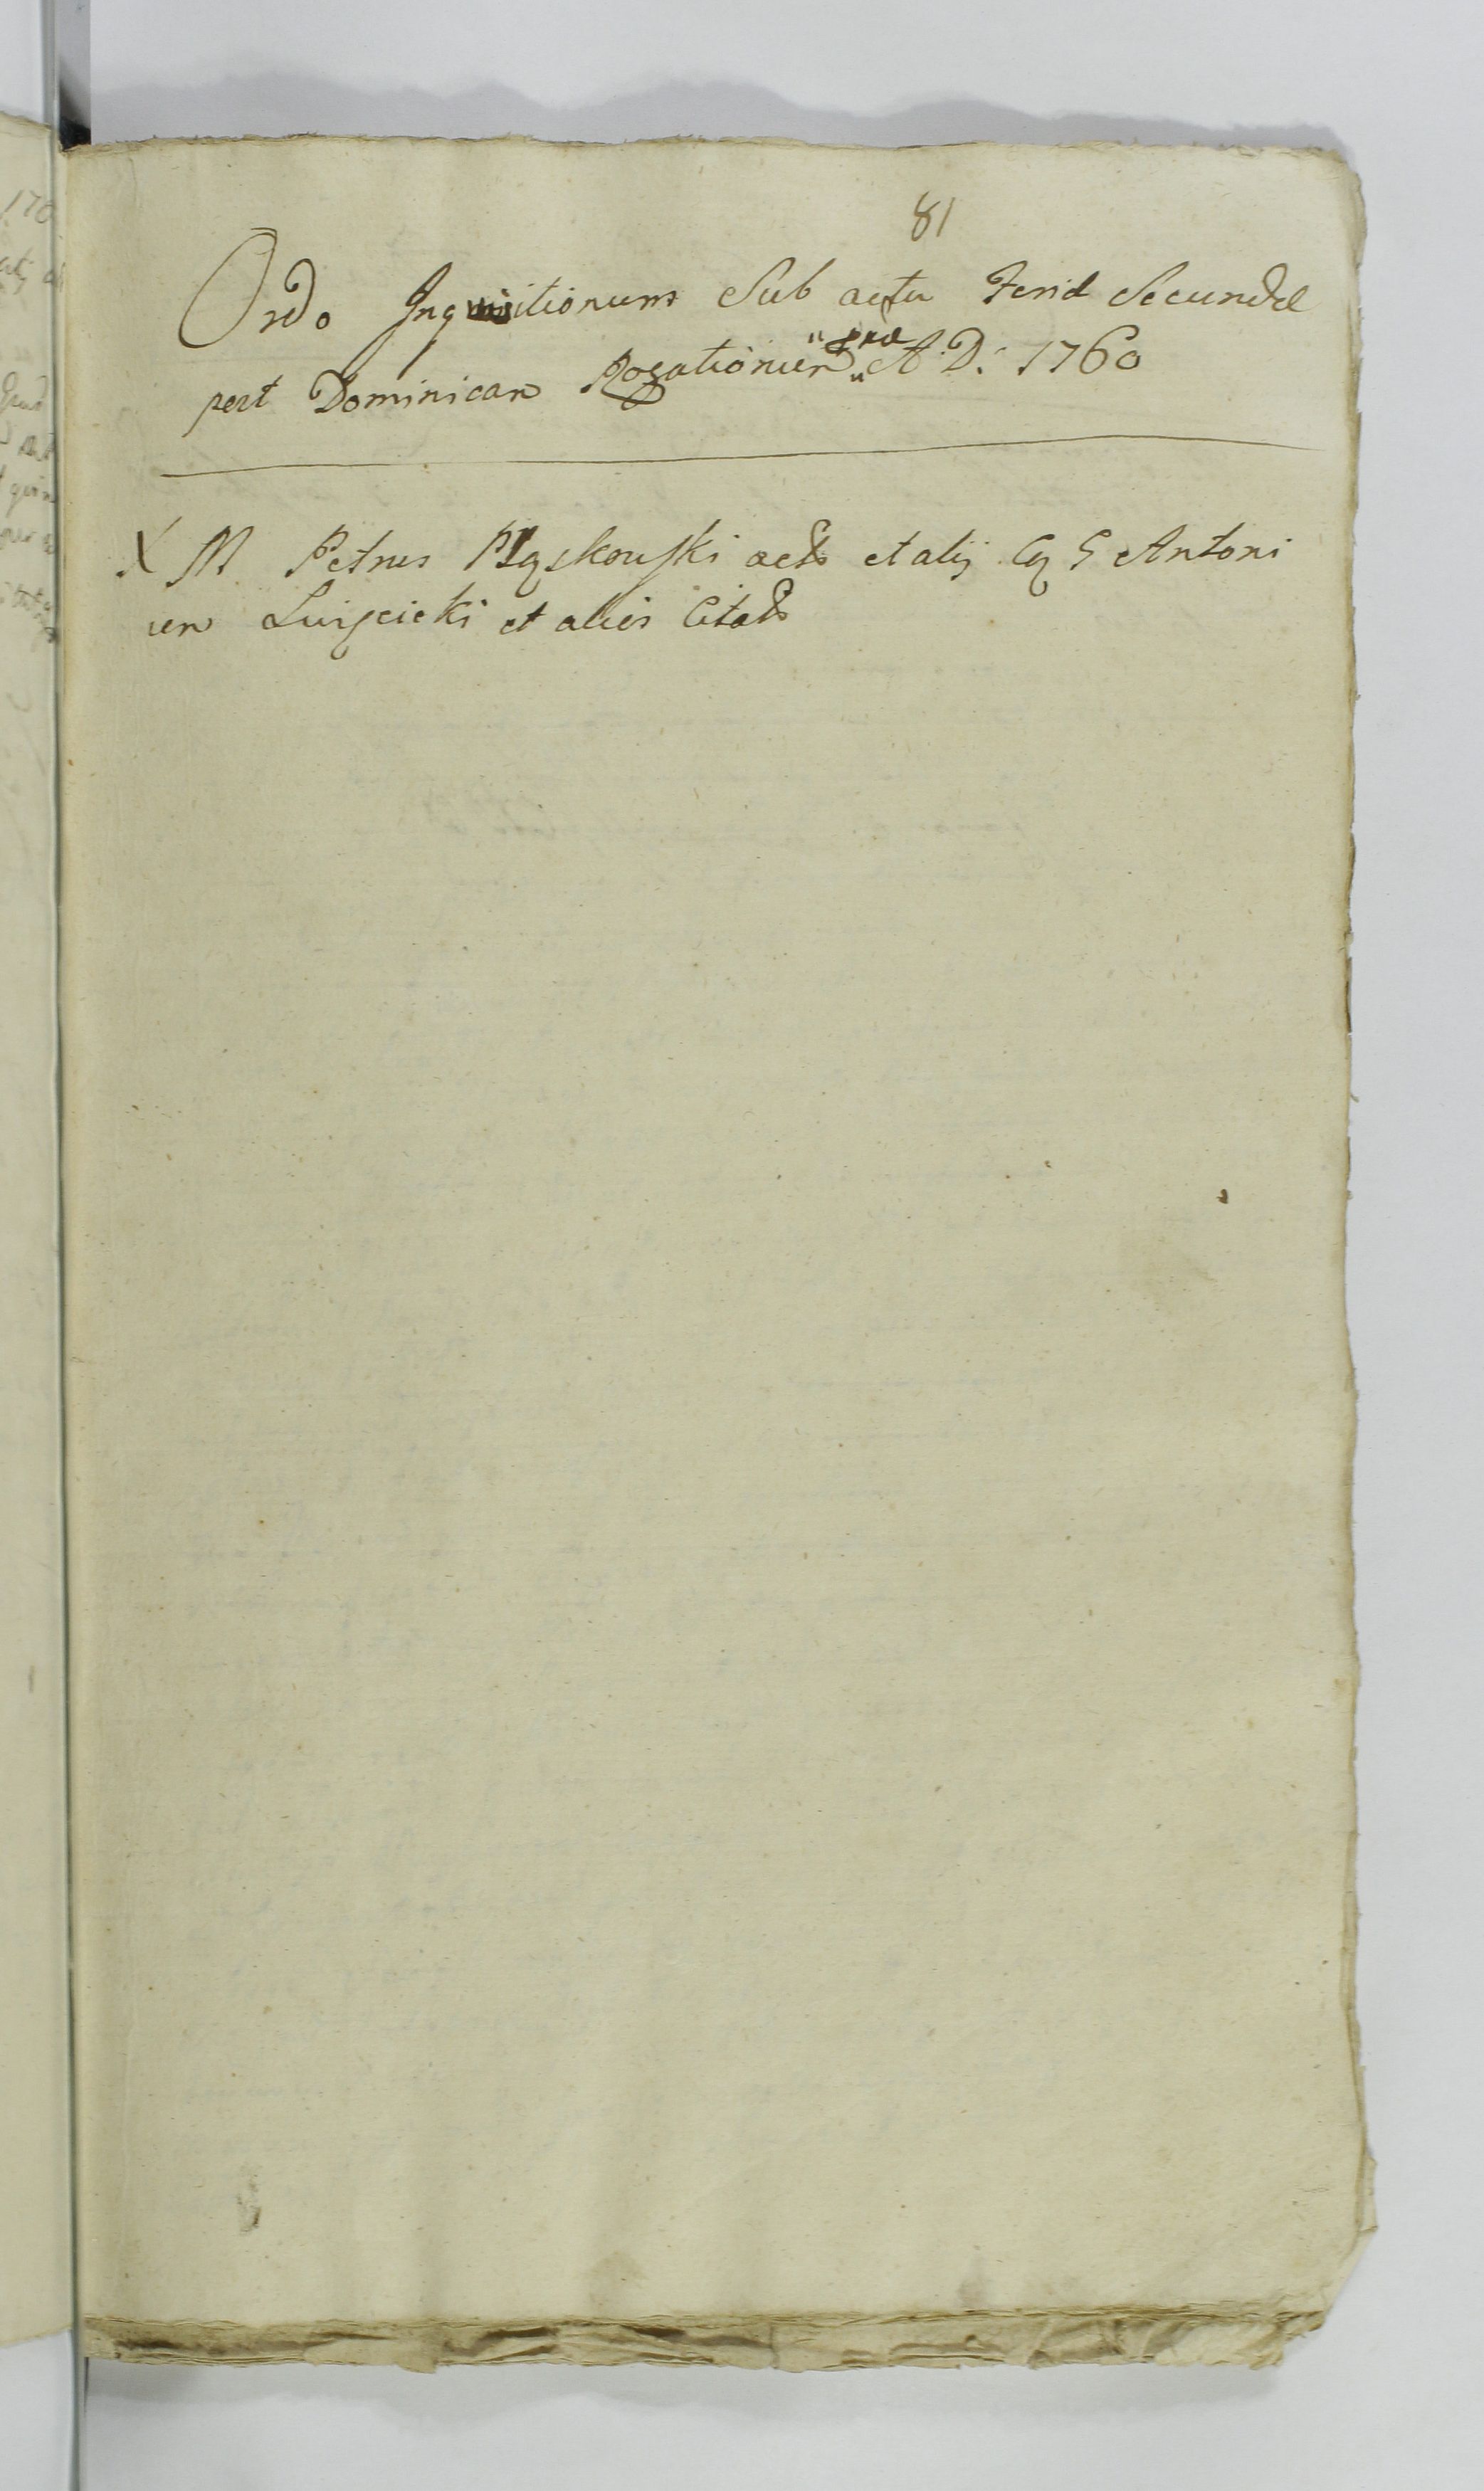 81
Ordo Inquisitionum Sub actu Feriæ Secundæ
post Dominicam Rogationum "pxæ" A. D: 1760
X M Petrus Pląskowski act et alij Cą G Antoni
um Święcicki et alios Citat